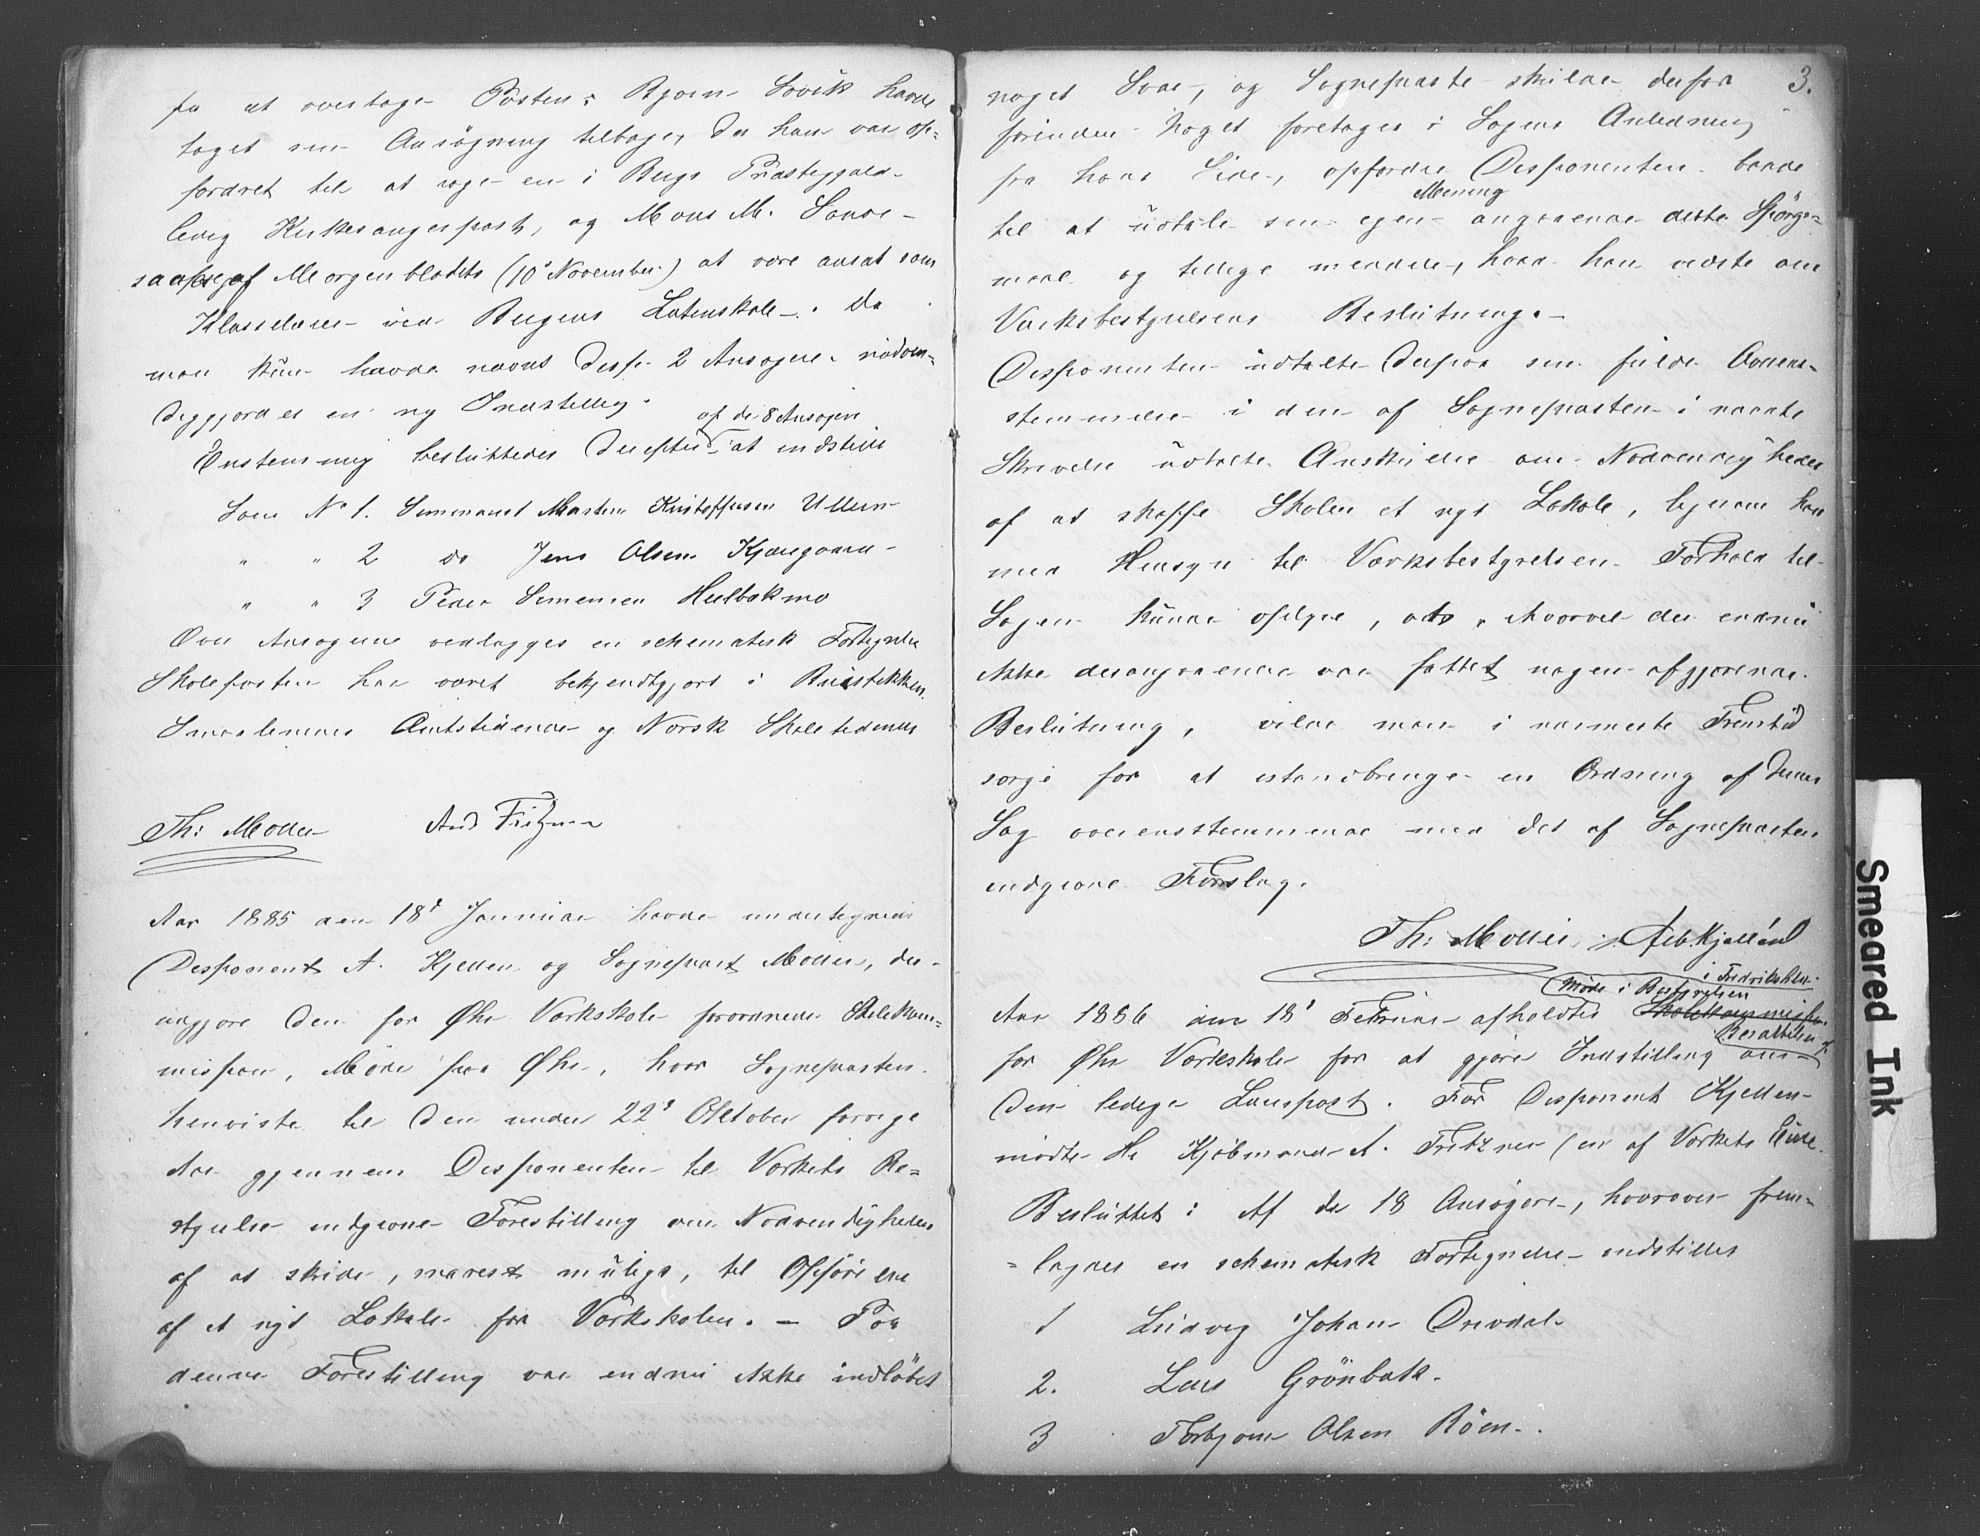 fra at overtage Posten. Bjørn Lovik havde
taget sin Ansøgning tilbage, da han var op-
fordret til at søge en i Bergs Præstegjeld
ledig Kirkesangerpost, og Mons M.
af Morgenbladets (10' November) at være ansat som
Klasselærer ved Bergens Latinskole. Da
man kun havde nævnt disse 2 Ansøgere, nødven-
diggjordes en ny Indstilling.
Enstemmig besluttedes derefter af de 8 Ansøgere at indstille
Som No 1. Seminarist Martin Kristoffersen Ullern
" " 2 do Jens Olsen Kjærgaard
" " 3 Peder Simensen Hulbakmo
Over Ansøgerne vedlægges en schematisk Fortegnelse
Skoleposten har været bekjendtgjort i Budstikken,
Smaalenenes Amtstidende og Norsk Skoletidende
Th: Møller And Fritzner
Aar 1885 den 18' Januar havde undertegnede
Disponent A. Kjellen og Sogneprest Møller, der
udgjøre den for Øhs Værkskole forordnede Skolekom-
mission, Møde paa Øhs, hvor Sognepræsten
henviste til den under 22' Oktober forrige
Aar gjennem Disponenten til Værkets Be-
styrelse indgivne Forestilling om Nødvendigheden
af at skride, snarest muligt, til Opførelse
af et nyt Lokale for Værkskolen. - Paa
denne Forestilling var endnu ikke indløbet
3.
noget Svar, og Sognepræsten skulde derfor
forinden noget foretages i Sagens Anledning
fra hans Side, opfordre Disponenten baade
til at udtale sin egen Mening angaaende dette Spørgs-
maal og tillige meddele, hvad han vidste om
Værksbestyrelsens Beslutning. -
Disponenten udtalte derpaa sin fulde Overens-
stemmelse i den af Sognepræsten i nævnte
Skrivelse udtalte Anskuelse om Nødvendigheden
af at skaffe Skolen et nyt Lokale, ligesom han
med Hensyn til Værksbestyrelsens Forhold til
Sagen kunde oplyse, at, hvorvel der endnu
ikke desangaaende var fattet nogen afgjørende
Beslutning, vilde man i nærmeste Fremtid
sørge for at istandbringe en Ordning af denne
Sag overensstemmende med det af Sognepræsten
indgivne Forslag.
Th: Møller
Aar 1886 den 18' Februar afholdtes Møde i Bestyrelsen i Fredrikshald
for Øhs Værkskole for at gjøre Indstilling om Besættelsen af
den ledige Lærerpost. For Disponent Kjellen
mødte Hr Kjøbmand A. Fritzner (en af Værkets Eiere.
Besluttet: Af de 18 Ansøgere, hvorover frem-
lagdes en schematisk Fortegnelse indstilles
1 Ludvig Johan Drevdal
2. Lars Grönbæk.
3 Torbjørn Olsen Röen.
Smeared Ink